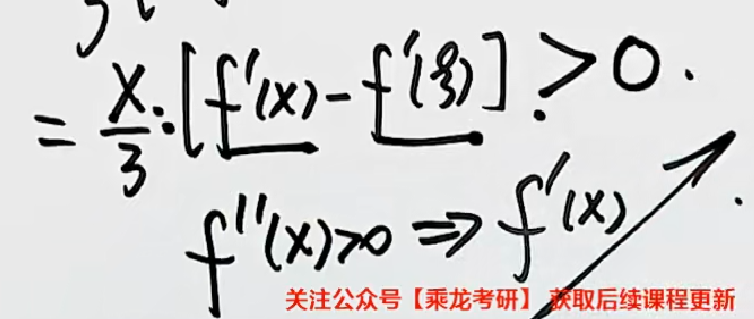 = x/3·[f'(x)-f'(ξ)] > 0.
f''(x)>0 ⇒ f'(x)
关注公众号【乘龙考研】 获取后续课程更新